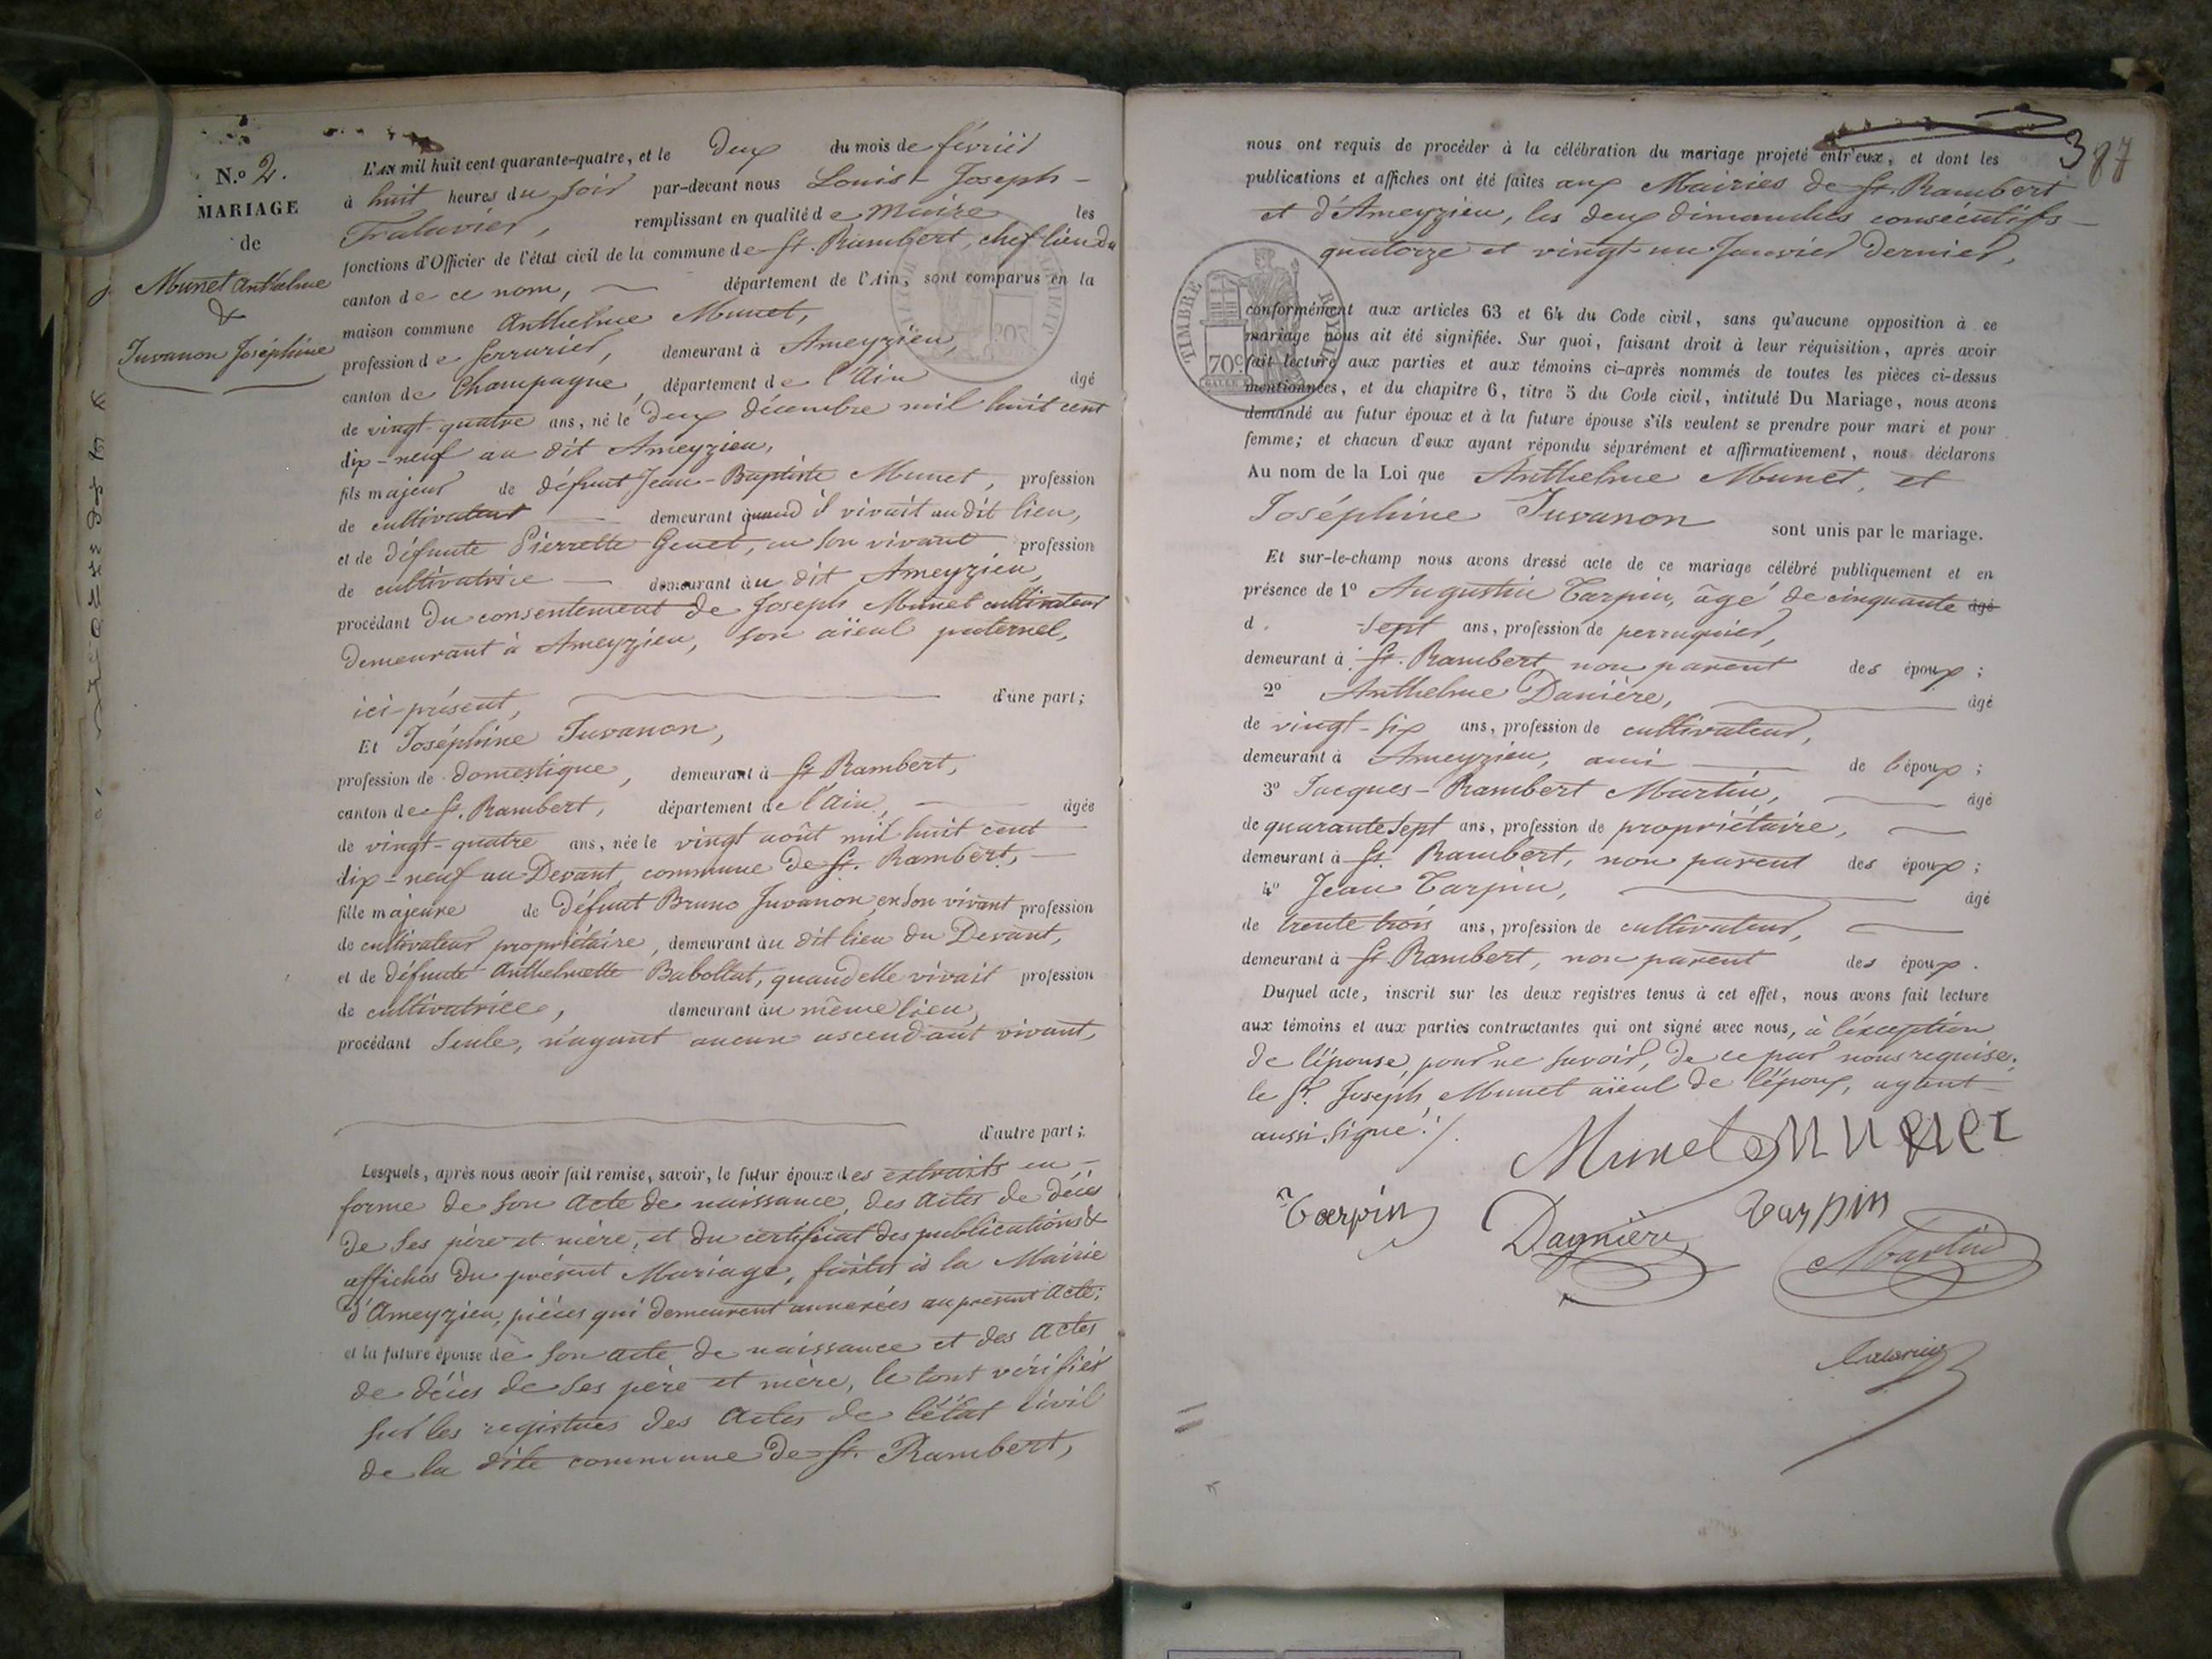 N.o 2.
MARIAGE
de
Munet Anthelme
&
Juvanon Joséphine
L'AN mil huit cent quarante-quatre, et le deux du mois de février
à huit heures du soir par-devant nous Louis-Joseph-
remplissant en qualité de Maire les
fonctions d'Officier de l'état civil de la commune de St. Rambert, chef-lieu du
canton de ce nom, département de l'Ain, sont comparus en la
maison commune Anthelme Munet,
profession de serrurier, demeurant à Ameyzieu,
canton de Champagne, département de l'Ain âgé
de vingt-quatre ans, né le deux décembre mil huit cent
dix-neuf au dit Ameyzieu,
fils majeur de défunt Jean-Baptiste Munet, profession
de cultivateur demeurant quand il vivait au dit lieu,
et de défunte Pierrette Genet, en son vivant profession
de cultivatrice demeurant au dit Ameyzieu,
procédant du consentement de Joseph Munet cultivateur
demeurant à Ameyzieu, son aïeul paternel,
ici présent, d'une part;
Et Joséphine Juvanon,
profession de domestique, demeurant à St Rambert,
canton de St. Rambert, département de l'Ain, âgée
de vingt-quatre ans, née le vingt août mil huit cent
dix-neuf au Devant commune de St. Rambert,
fille majeure de défunt Bruno Juvanon, en son vivant profession
de cultivateur propriétaire, demeurant au dit lieu du Devant,
et de défunte Anthelmette Babollat, quand elle vivait profession
de cultivatrice, demeurant au même lieu,
procédant seule, n'ayant aucun ascendant vivant,
d'autre part;
Lesquels, après nous avoir fait remise, savoir, le futur époux des extraits en
forme de son acte de naissance, des actes de décès
de ses père et mère, et du certificat des publications &
affiches du présent Mariage, faites à la Mairie
d'Ameyzieu, pièces qui demeurent annexées au présent acte;
et la future épouse de son acte de naissance et des actes
de décès de ses père et mère, le tout vérifiés
sur les registres des actes de l'état civil
de la dite commune de St. Rambert,
387
nous ont requis de procéder à la célébration du mariage projeté entr'eux, et dont les
publications et affiches ont été faites aux Mairies de St. Rambert
et d'Ameyzieu, les deux dimanches consécutifs
quatorze et vingt-un Janvier dernier,
TIMBRE ROYAL
70c
conformément aux articles 63 et 64 du Code civil, sans qu'aucune opposition à ce
mariage nous ait été signifiée. Sur quoi, faisant droit à leur réquisition, après avoir
fait lecture aux parties et aux témoins ci-après nommés de toutes les pièces ci-dessus
mentionnées, et du chapitre 6, titre 5 du Code civil, intitulé Du Mariage, nous avons
demandé au futur époux et à la future épouse s'ils veulent se prendre pour mari et pour
femme; et chacun d'eux ayant répondu séparément et affirmativement, nous déclarons
Au nom de la Loi que Anthelme Munet, et
Joséphine Juvanon sont unis par le mariage.
Et sur-le-champ nous avons dressé acte de ce mariage célébré publiquement et en
présence de 1o Augustin Tarpin, âgé de cinquante âgé
d -sept ans, profession de perruquier,
demeurant à St. Rambert non parent des époux;
2o Anthelme Danière, âgé
de vingt-six ans, profession de cultivateur,
demeurant à Ameyzieu, ami de l'époux;
3o Jacques-Rambert Martin, âgé
de quarante sept ans, profession de propriétaire,
demeurant à St. Rambert, non parent des époux;
4o Jean Tarpin, âgé
de trente trois ans, profession de cultivateur,
demeurant à St. Rambert, non parent des époux.
Duquel acte, inscrit sur les deux registres tenus à cet effet, nous avons fait lecture
aux témoins et aux parties contractantes qui ont signé avec nous, à l'exception
de l'épouse, pour ne savoir, de ce par nous requise,
le Sr. Joseph Munet aïeul de l'époux, ayant
aussi signé./.
Munet Munet
Tarpin Dagnière Tarpin
Martin